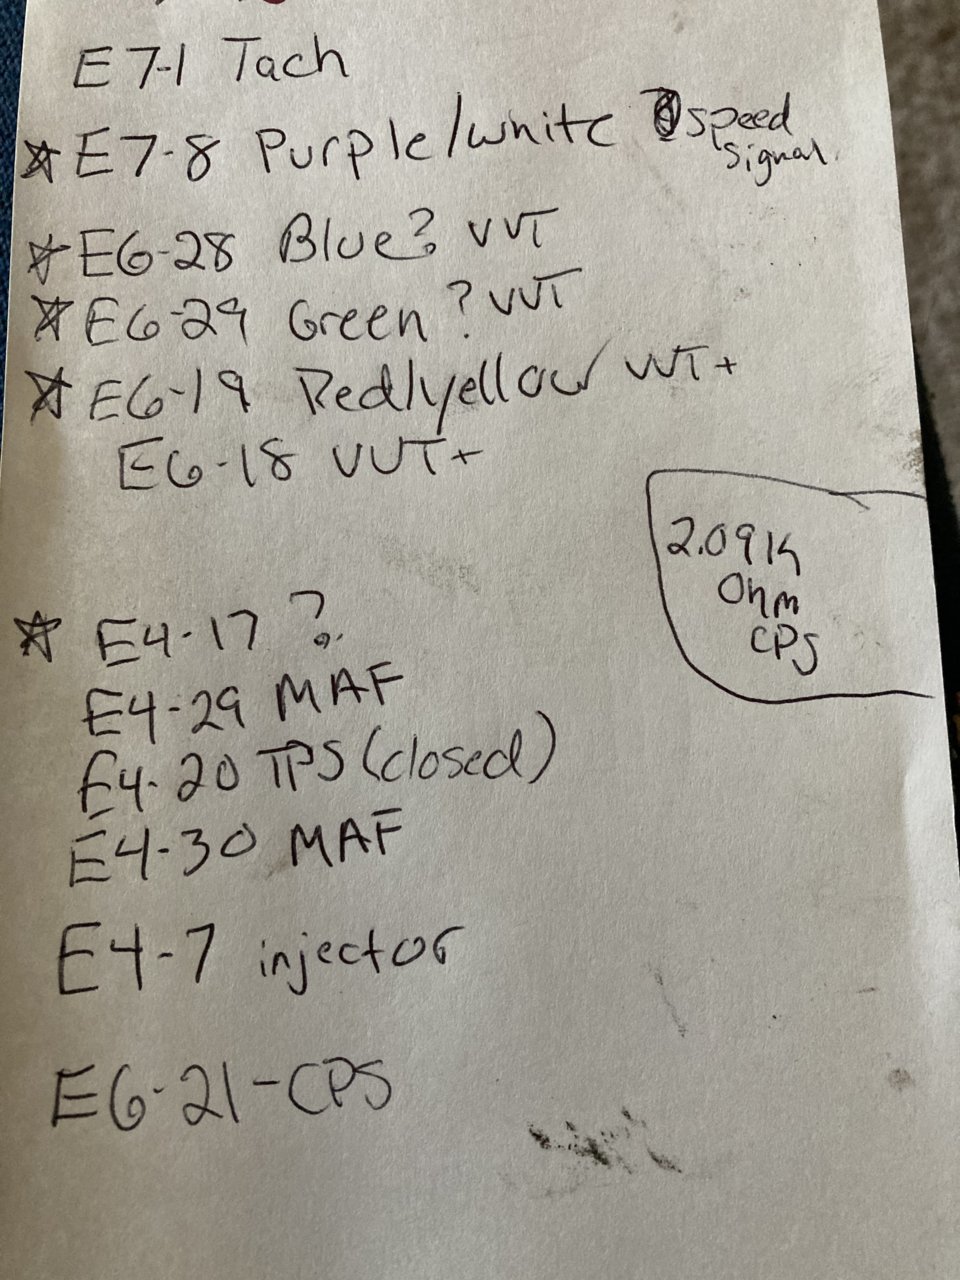 E7-1 Tach
☆ E7-8 Purple/white speed
signal.
☆ E6-28 Blue? VVT
☆ E6-29 Green? VVT
☆ E6-19 Red/yellow VVT+
E6-18 VVT+
2.09k
Ohm
CPS
☆ E4-17 ?
E4-29 MAF
E4-20 TPS (closed)
E4-30 MAF
E4-7 injector
E6-21-CPS